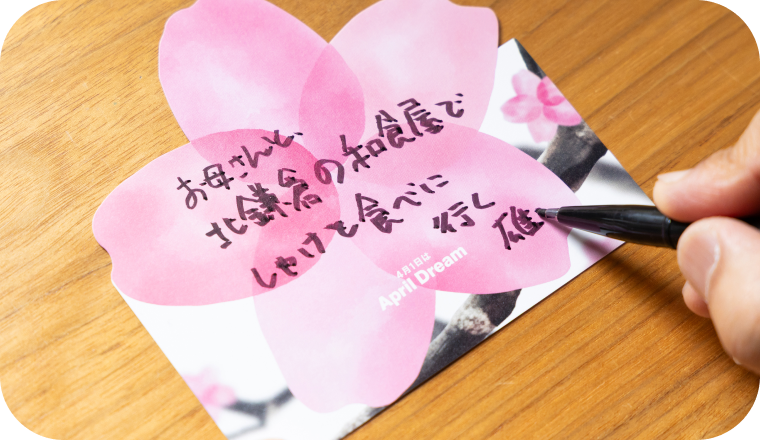 お母さんと、
北鎌倉の和食屋で
しゃけを食べに
行く 雄
4月1日は
April Dream